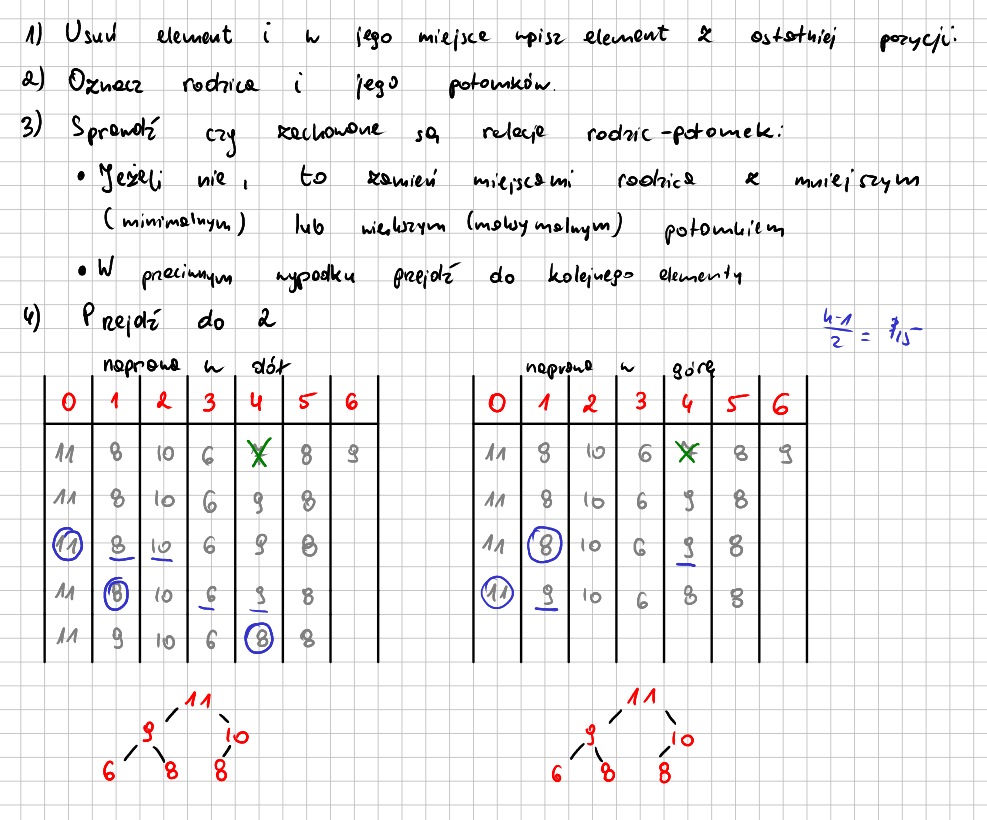 1) Usuń element i w jego miejsce wpisz element z ostatniej pozycji.
2) Oznacz rodzica i jego potomków.
3) Sprawdź czy zachowane są relacje rodzic-potomek:
• Jeżeli nie, to zamień miejscami rodzica z mniejszym
(minimalnym) lub większym (maksymalnym) potomkiem
• W preciwnym wypadku prejdź do kolejnego elementy
4) Prejdź do 2
4-1/2 = 1,5
naprawa w dół
0 1 2 3 4 5 6
11 8 10 6 X 8 9
11 8 10 6 9 8
11 8 10 6 9 8
11 8 10 6 9 8
11 9 10 6 8 8
11
9 10
6 8 8
naprawa w górę
0 1 2 3 4 5 6
11 8 10 6 X 8 9
11 8 10 6 9 8
11 8 10 6 9 8
11 9 10 6 8 8
11
9 10
6 8 8